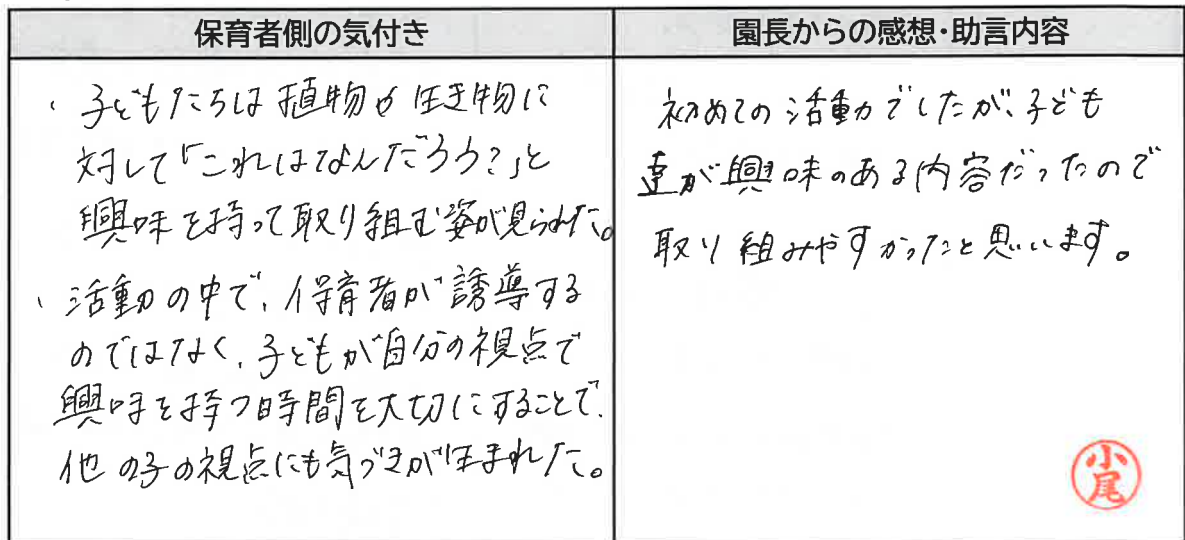 保育者側の気付き
・子どもたちは植物や生き物に
対して「これはなんだろう?」と
興味を持って取り組む姿が見られた。
・活動の中で、保育者が誘導する
のではなく、子どもが自分の視点で
興味を持つ時間を大切にすることで、
他の子の視点にも気づきが生まれた。
園長からの感想・助言内容
初めての活動でしたが、子ども
達が興味のある内容だったので
取り組みやすかったと思います。
小尾